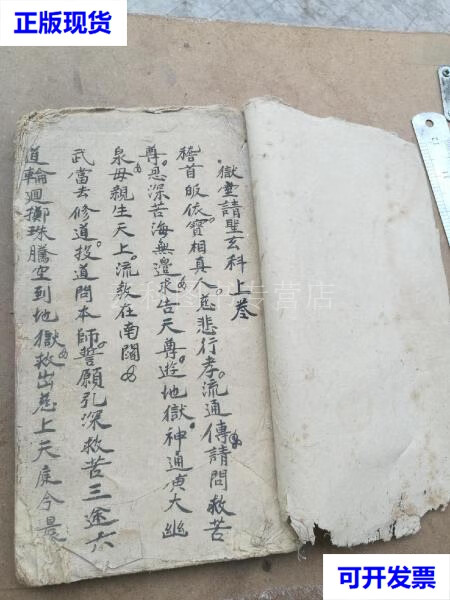 正版现货
獄堂請聖玄科上卷
稽首皈依寶相真人慈悲行孝流通傳請問救苦
尊恩深苦海無邊求告天尊遊地獄神通廣大幽
泉母親生天上流教在南閻
武當去修道投道問本師誓願引深救苦三途六
道輪迴擲珠騰空到地獄救出慈上天庭今晨
即买即发
可开发票